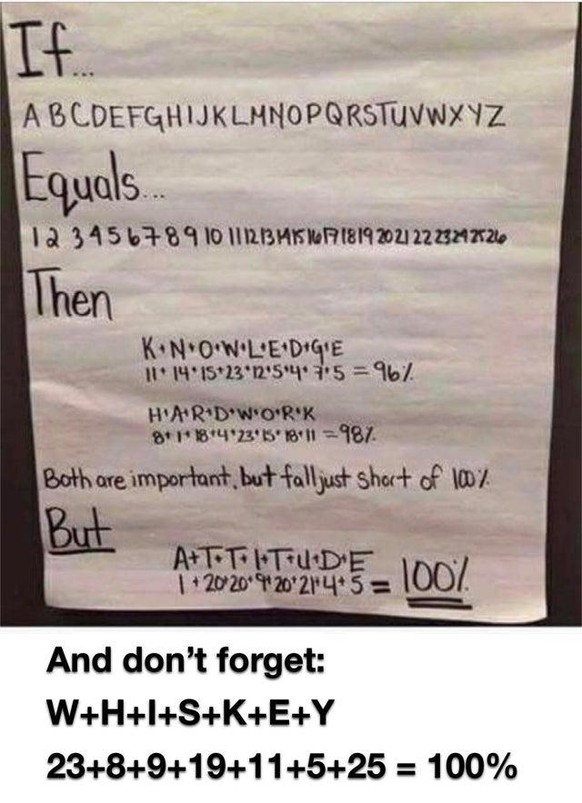 If...
A B C D E F G H I J K L M N O P Q R S T U V W X Y Z
Equals...
1 2 3 4 5 6 7 8 9 10 11 12 13 14 15 16 17 18 19 20 21 22 23 24 25 26
Then
K+N+O+W+L+E+D+G+E
11+14+15+23+12+5+4+7+5 = 96%
H+A+R+D+W+O+R+K
8+1+18+4+23+15+18+11 = 98%
Both are important, but fall just short of 100%
But
A+T+T+I+T+U+D+E
1+20+20+9+20+21+4+5 = 100%
And don't forget:
W+H+I+S+K+E+Y
23+8+9+19+11+5+25 = 100%